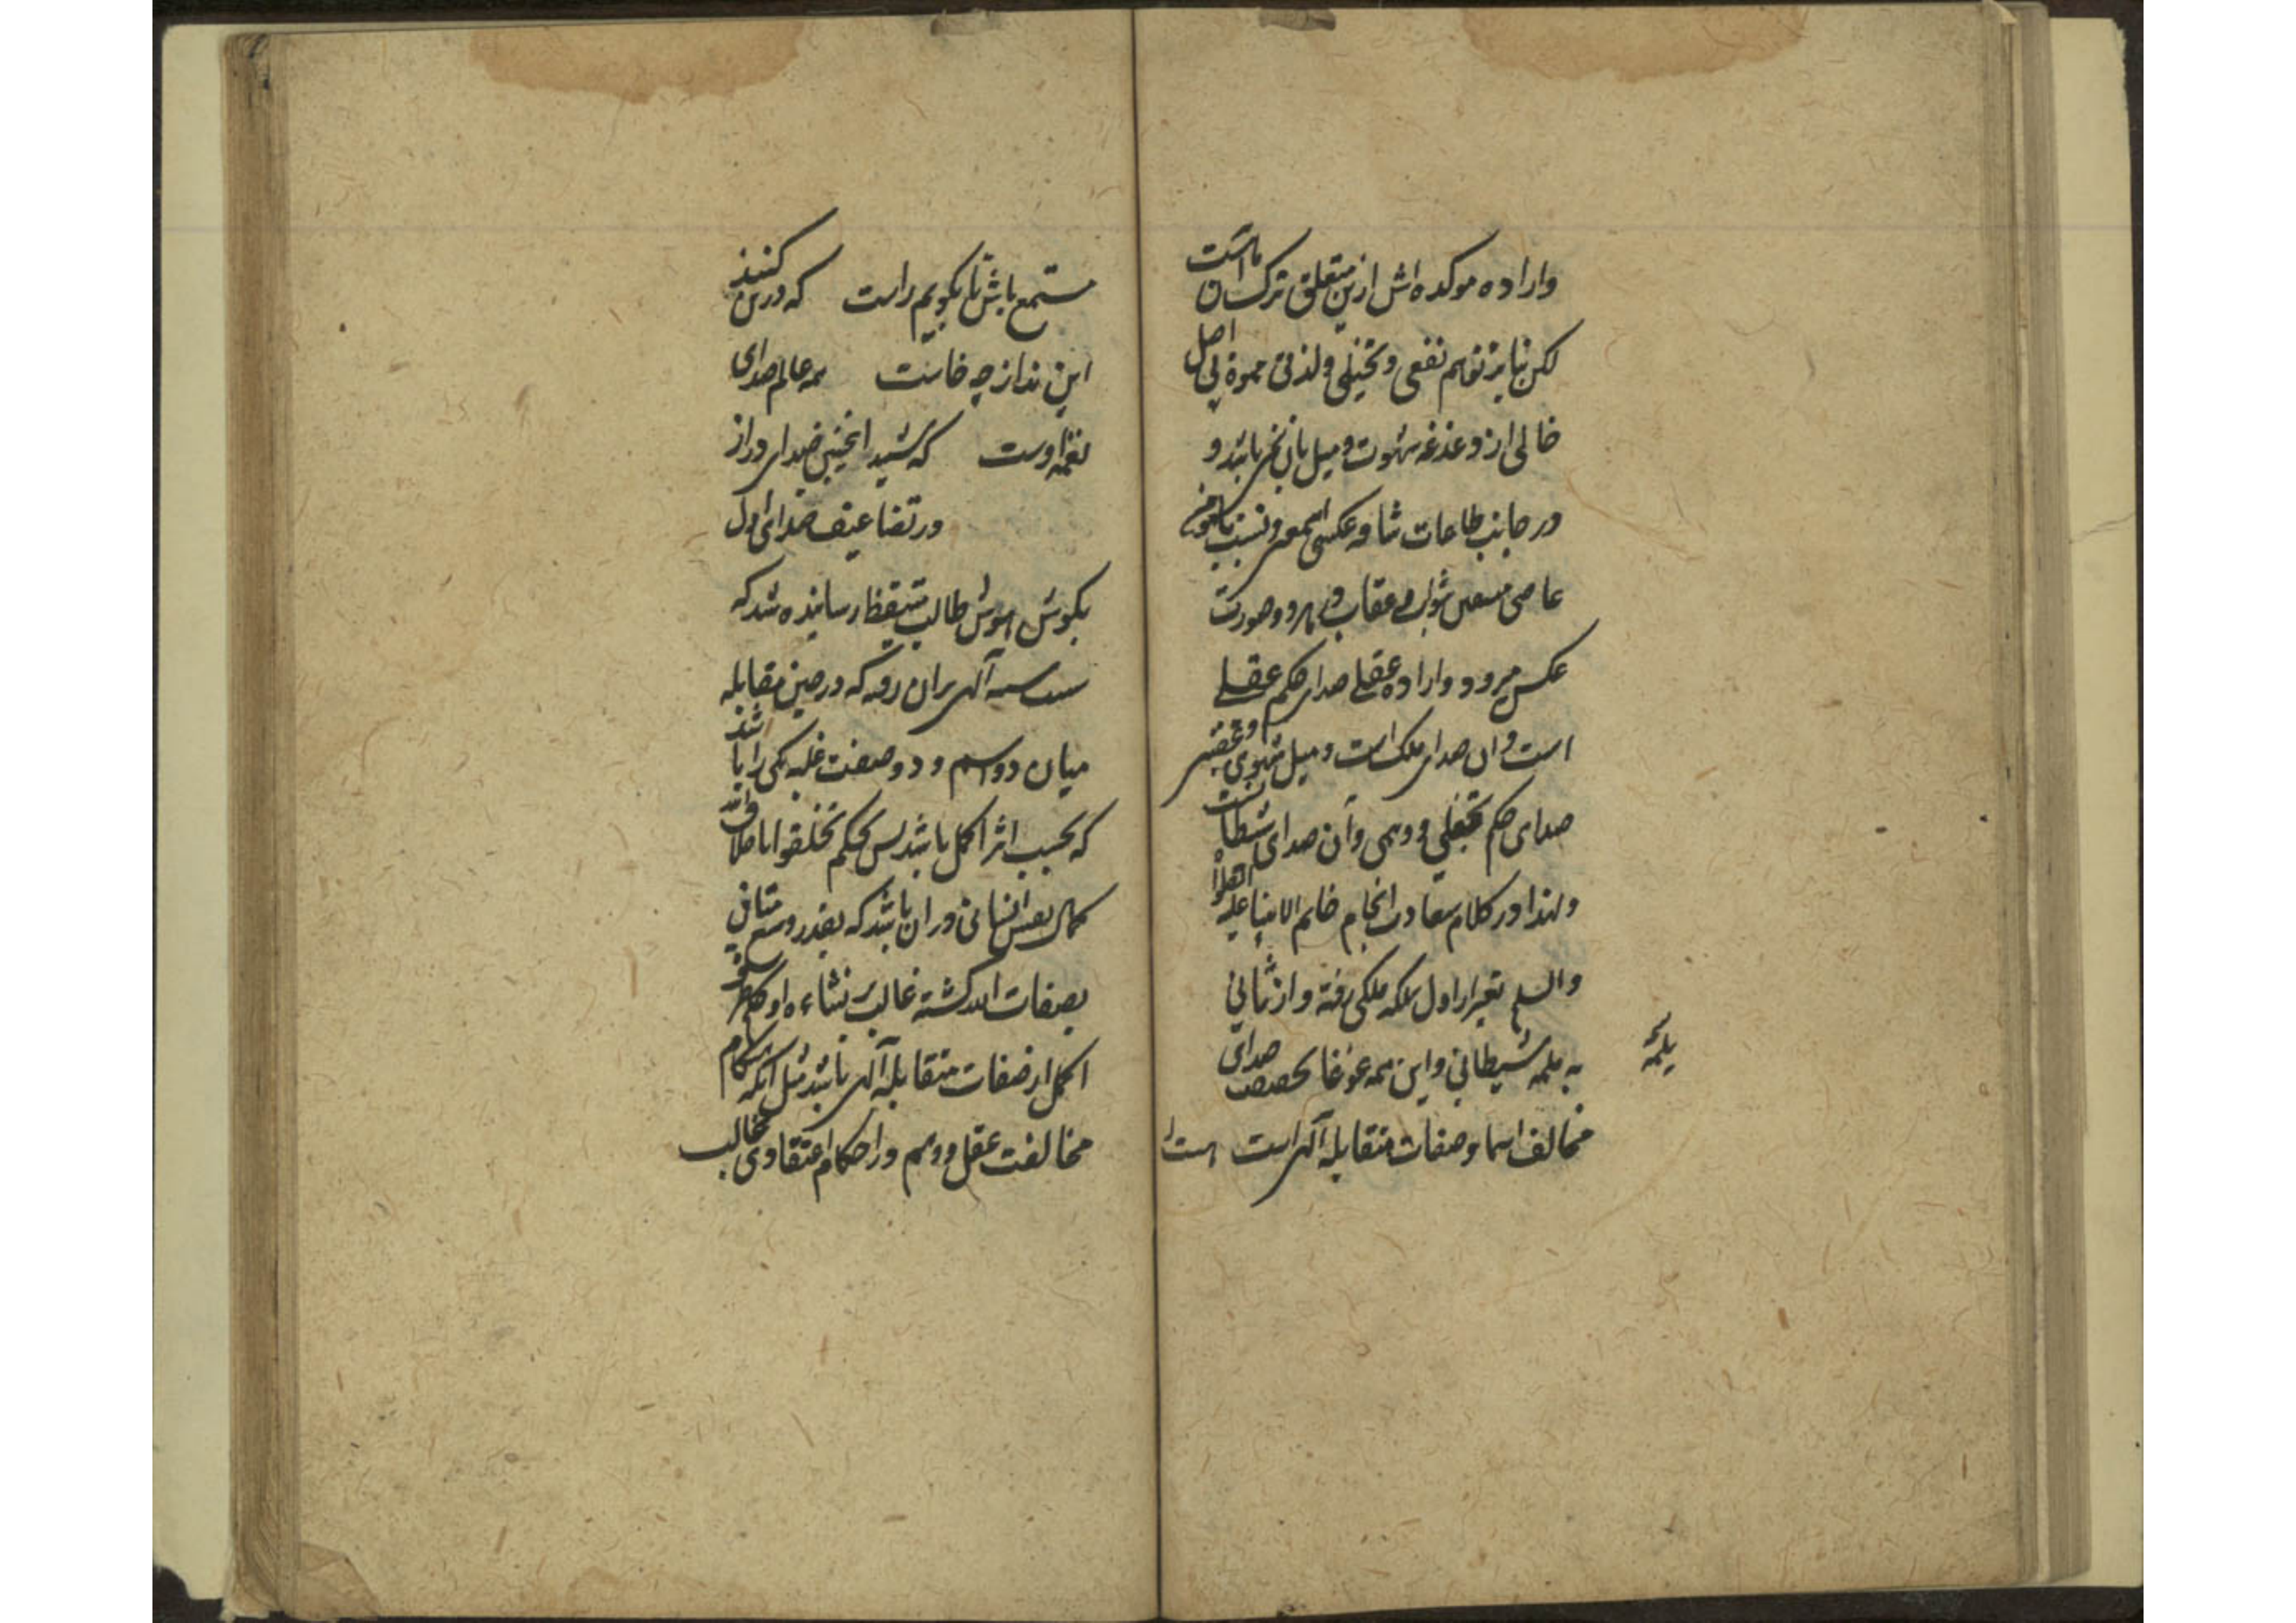 واراده موکده اش ازین متعلق ترک آن ماست
لکن بنابر توهم نفعی و تخیلی ولذتی مموه بی اصل
خالی از دغدغه شهوت و میل بان نمی باشد و
در جانب طاعات شاقه عکس اسمع و نسبت با مومن
عاصی مستعین ثواب و عقاب و هر دو صورت
عکس میرود واراده عقلے صدای حکم عقلے
است و ان صدای ملک است و میل شهوی و غضبی
صدای حکم تخیلی و وهمی و آن صدای شیطانست
ولهذا در کلام سعادت انجام خاتم الانبیا علیه الصلوة
والسلم تعبیر از اول بلمه ملکی رفته و از ثانی
به بلمه شیطانی و این همه غوغا بحقیقت صدای
مخالف اسما و صفات متقابله آلهی است است
بلمه
مستمع باش تا بگویم راست که درین کنند
این ندا از چه خاست همه عالم صدای
نغمه اوست که شنید اینچنین صدای دراز
در تضاعیف صدای اول
بگوش هوش طالب متیقظ رسانیده شد که
آلهی بران رفته که در حین مقابله
میان دو اسم و دو صفت غلبه یکی را باشد
که بحسب اثر اکمل باشد پس بحکم تخلقوا باخلاق الله
کمال نفس انسانی در ان باشد که بقدر وسع متانی
بصفات الله گشته غالب بر نشاءه او
اکمل از صفات متقابله آلهی باشد مثل آنکه هنگام
مخالفت عقل و وهم در احکام اعتقادی غالب